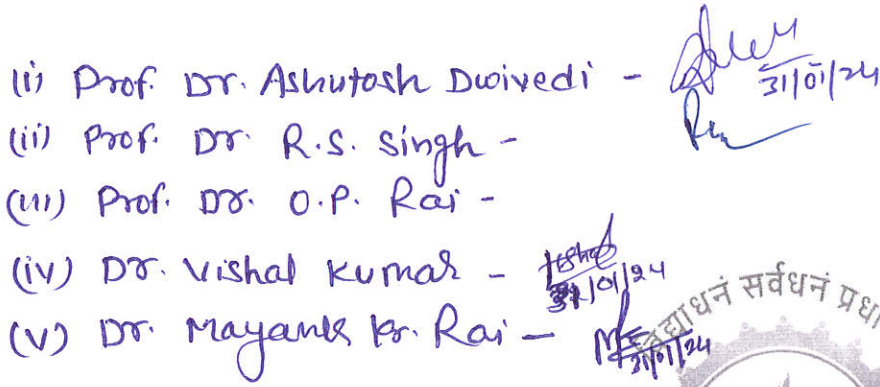 (i) Prof. Dr. Ashutosh Dwivedi - 31/01/24
(ii) Prof. Dr. R.S. Singh -
(iii) Prof. Dr. O.P. Rai -
(iv) Dr. Vishal Kumar - 31/01/24
(v) Dr. Mayank Kr. Rai - 31/01/24
सर्वधनं